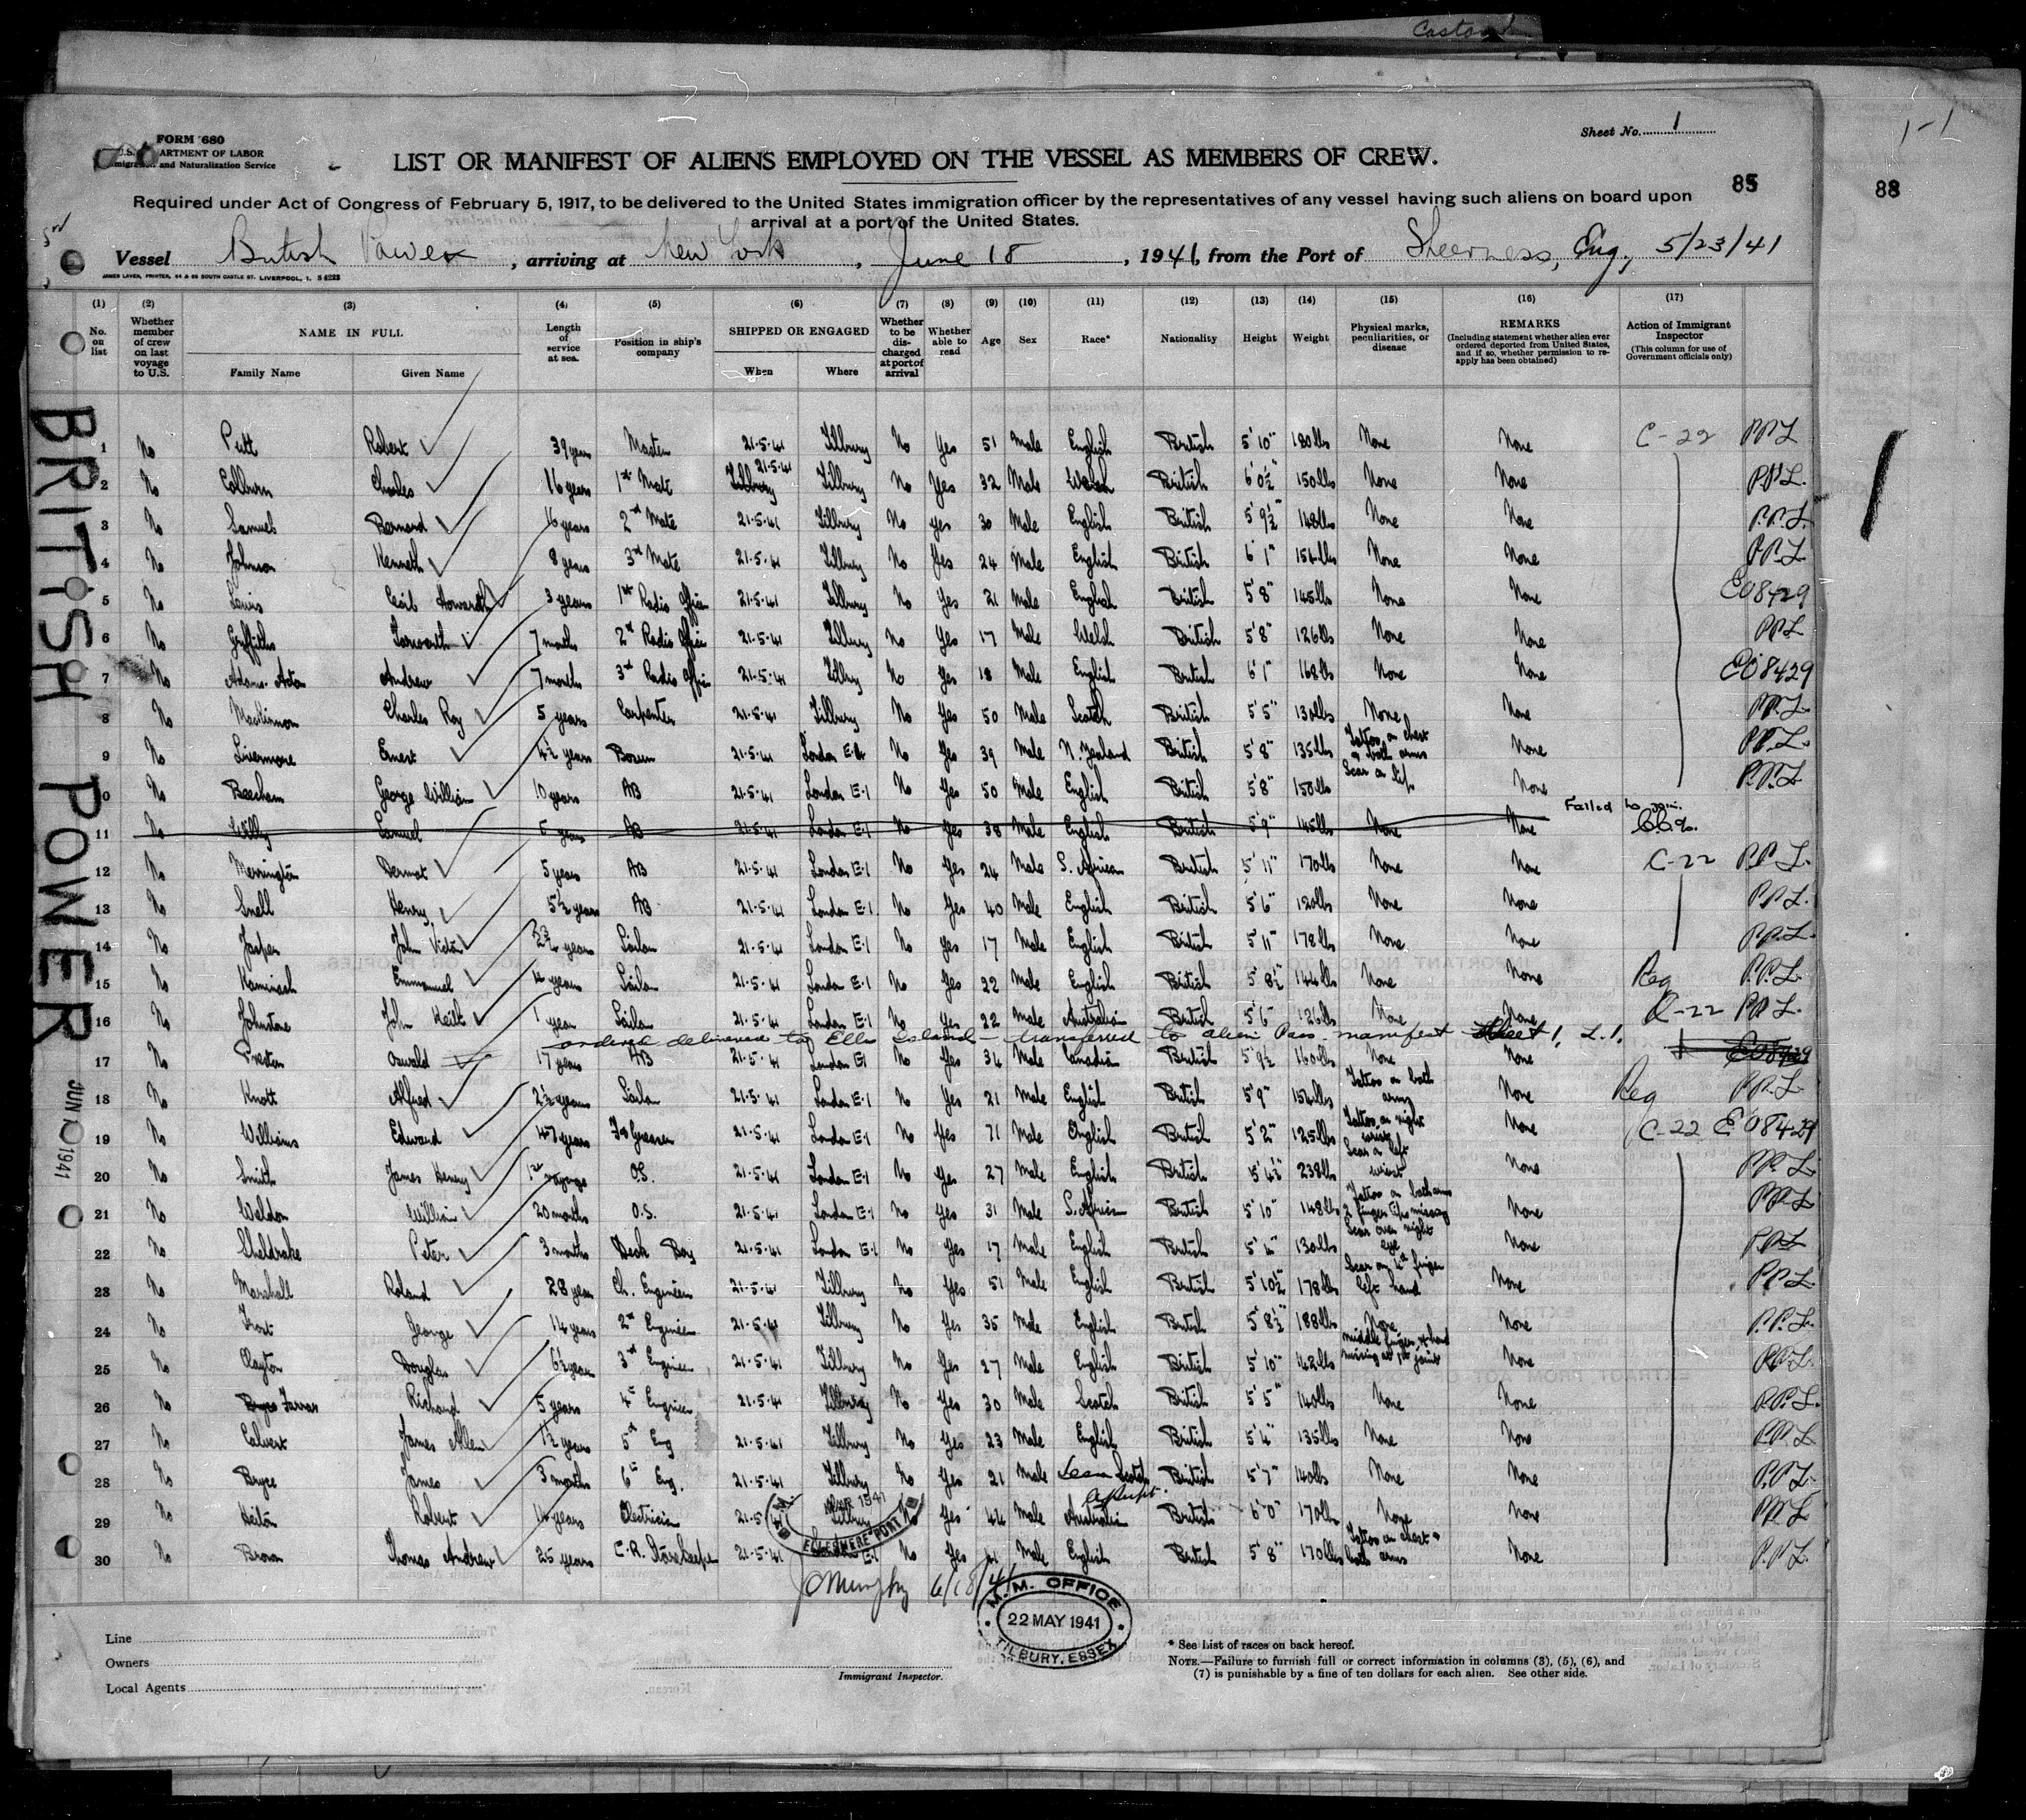 Casto
Sheet No. 1
1-1
FORM 680
U.S. DEPARTMENT OF LABOR
Immigration and Naturalization Service
LIST OR MANIFEST OF ALIENS EMPLOYED ON THE VESSEL AS MEMBERS OF CREW.
85
88
Required under Act of Congress of February 5, 1917, to be delivered to the United States immigration officer by the representatives of any vessel having such aliens on board upon
arrival at a port of the United States.
Vessel British Power, arriving at New York, June 18, 1941, from the Port of Sheerness, Eng., 5/23/41
JAMES LAVER, PRINTER, 64 & 66 SOUTH CASTLE ST. LIVERPOOL, 1.
(1) (2) (3) (4) (5) (6) (7) (8) (9) (10) (11) (12) (13) (14) (15) (16) (17)
No. on list
Whether member of crew on last voyage to U.S.
NAME IN FULL
Family Name Given Name
Length of service at sea.
Position in ship's company
SHIPPED OR ENGAGED
When Where
Whether to be discharged at port of arrival
Whether able to read
Age
Sex
Race*
Nationality
Height
Weight
Physical marks, peculiarities, or disease
REMARKS
(Including statement whether alien ever ordered deported from United States, and if so, whether permission to re-apply has been obtained)
Action of Immigrant Inspector
(This column for use of Government officials only)
BRITISH POWER
JUN 1941
1 No Putt Robert 39 years Master 21-5-41 Tilbury No Yes 51 Male English British 5'10" 180lbs None None C-22 PPL
2 No Colburn Charles 16 years 1st Mate Tilbury 21-5-41 Tilbury No Yes 32 Male Welsh British 6'0½" 150lbs None None PPL.
3 No Samuels Bernard 16 years 2nd Mate 21-5-41 Tilbury No Yes 30 Male English British 5'9½" 148lbs None None P.P.L.
4 No Johnson Kenneth 8 years 3rd Mate 21-5-41 Tilbury No Yes 24 Male English British 6'1" 154lbs None None P.P.L.
5 No Lewis Cecil Howarth 3 years 1st Radio Officer 21-5-41 Tilbury No Yes 21 Male English British 5'8" 145lbs None None EO8429
6 No Griffiths Iorwerth 7 months 2nd Radio Officer 21-5-41 Tilbury No Yes 17 Male Welsh British 5'8" 126lbs None None PPL
7 No Adams-Acton Andrew 7 months 3rd Radio Officer 21-5-41 Tilbury No Yes 18 Male English British 6'1" 168lbs None None EO8429
8 No MacKinnon Charles Roy 5 years Carpenter 21-5-41 Tilbury No Yes 50 Male Scotch British 5'5" 130lbs None None PP.L.
9 No Livermore Ernest 4½ years Bosun 21-5-41 London E-1 No Yes 39 Male N. Zealand British 5'8" 135lbs Tattoo on chest & both arms None PP.L.
10 No Beecham George William 10 years AB 21-5-41 London E-1 No Yes 50 Male English British 5'8" 150lbs Scar on lip None P.P.L
11 No Willy Samuel 5 years AB 21-5-41 London E-1 No Yes 38 Male English British 5'9" 145lbs None None Failed to join.
12 No Merrington Dermot 5 years AB 21-5-41 London E-1 No Yes 24 Male S. African British 5'11" 170lbs None None C-22 P.P.L.
13 No Snell Henry 5½ years AB 21-5-41 London E-1 No Yes 40 Male English British 5'6" 120lbs None None P.P.L.
14 No Jasper John Victor 2¾ years Sailor 21-5-41 London E-1 No Yes 17 Male English British 5'11" 178lbs None None P.P.L.
15 No Kaminish Emmanuel 4 years Sailor 21-5-41 London E-1 No Yes 22 Male English British 5'8½" 144lbs None None Reg P.P.L.
16 No Johnstone John Keith 1 year Sailor 21-5-41 London E-1 No Yes 22 Male Australian British 5'6" 126lbs None None C-22 PPL.
ordered delivered to Ellis Island - transferred to alien Pass. manifest Sheet 1, L.1.
17 No Preston Oswald 17 years AB 21-5-41 London E-1 No Yes 34 Male Canadian British 5'9½ 160lbs None None EO8429
18 No Knott Alfred 2½ years Sailor 21-5-41 London E-1 No Yes 21 Male English British 5'9" 154lbs Tattoo on both arms None Reg P.P.L
19 No Williams Edward 47 years Fo Greaser 21-5-41 London E-1 No Yes 71 Male English British 5'2" 125lbs Tattoo on right wrist None C-22 EO8429
20 No Smith James Henry 1st voyage O.S. 21-5-41 London E-1 No Yes 27 Male English British 5'4½" 238lbs Scar on left wrist None P.P.L
21 No Weldon William 20 months O.S. 21-5-41 London E-1 No Yes 31 Male S. African British 5'10" 148lbs Tattoo on both arms 2 finger tips missing None P.P.L
22 No Cheldrake Peter 3 months Deck Boy 21-5-41 London E-1 No Yes 17 Male English British 5'4" 130lbs Scar over right eye None P.P.L
23 No Marshall Roland 28 years Ch. Engineer 21-5-41 Tilbury No Yes 51 Male English British 5'10½" 178lbs Scar on 4th finger left hand None P.P.L
24 No Frost George 14 years 2nd Engineer 21-5-41 Tilbury No Yes 35 Male English British 5'8½" 188lbs None None P.P.L.
25 No Clayton Douglas 6½ years 3rd Engineer 21-5-41 Tilbury No Yes 27 Male English British 5'10" 142lbs middle finger, r hand missing at 1st joint None P.P.L.
26 No Bryce Farrar Richard 5 years 4th Engineer 21-5-41 Tilbury No Yes 30 Male Scotch British 5'5" 140lbs None None P.P.L.
27 No Calvert James Allen 1½ years 5th Eng 21-5-41 Tilbury No Yes 23 Male English British 5'4" 135lbs None None P.P.L
28 No Bryce James 3 months 6th Eng. 21-5-41 Tilbury No Yes 21 Male Scotch British 5'7" 140lbs None None P.P.L
29 No Heiton Robert 14 years Electrician 21-5-41 Tilbury No Yes 44 Male Australian British 6'0" 170lbs None None PPL
30 No Brown Thomas Andrew 25 years E.R. Storekeeper 21-5-41 London E-1 No Yes 41 Male English British 5'8" 170lbs Tattoo on chest & both arms None P.P.L.
1941
ELLESMERE PORT
JCMurphy 6/18/41
M.M. OFFICE
22 MAY 1941
TILBURY, ESSEX
Line
Owners
Local Agents
Immigrant Inspector.
* See List of races on back hereof.
NOTE.—Failure to furnish full or correct information in columns (3), (5), (6), and
(7) is punishable by a fine of ten dollars for each alien. See other side.